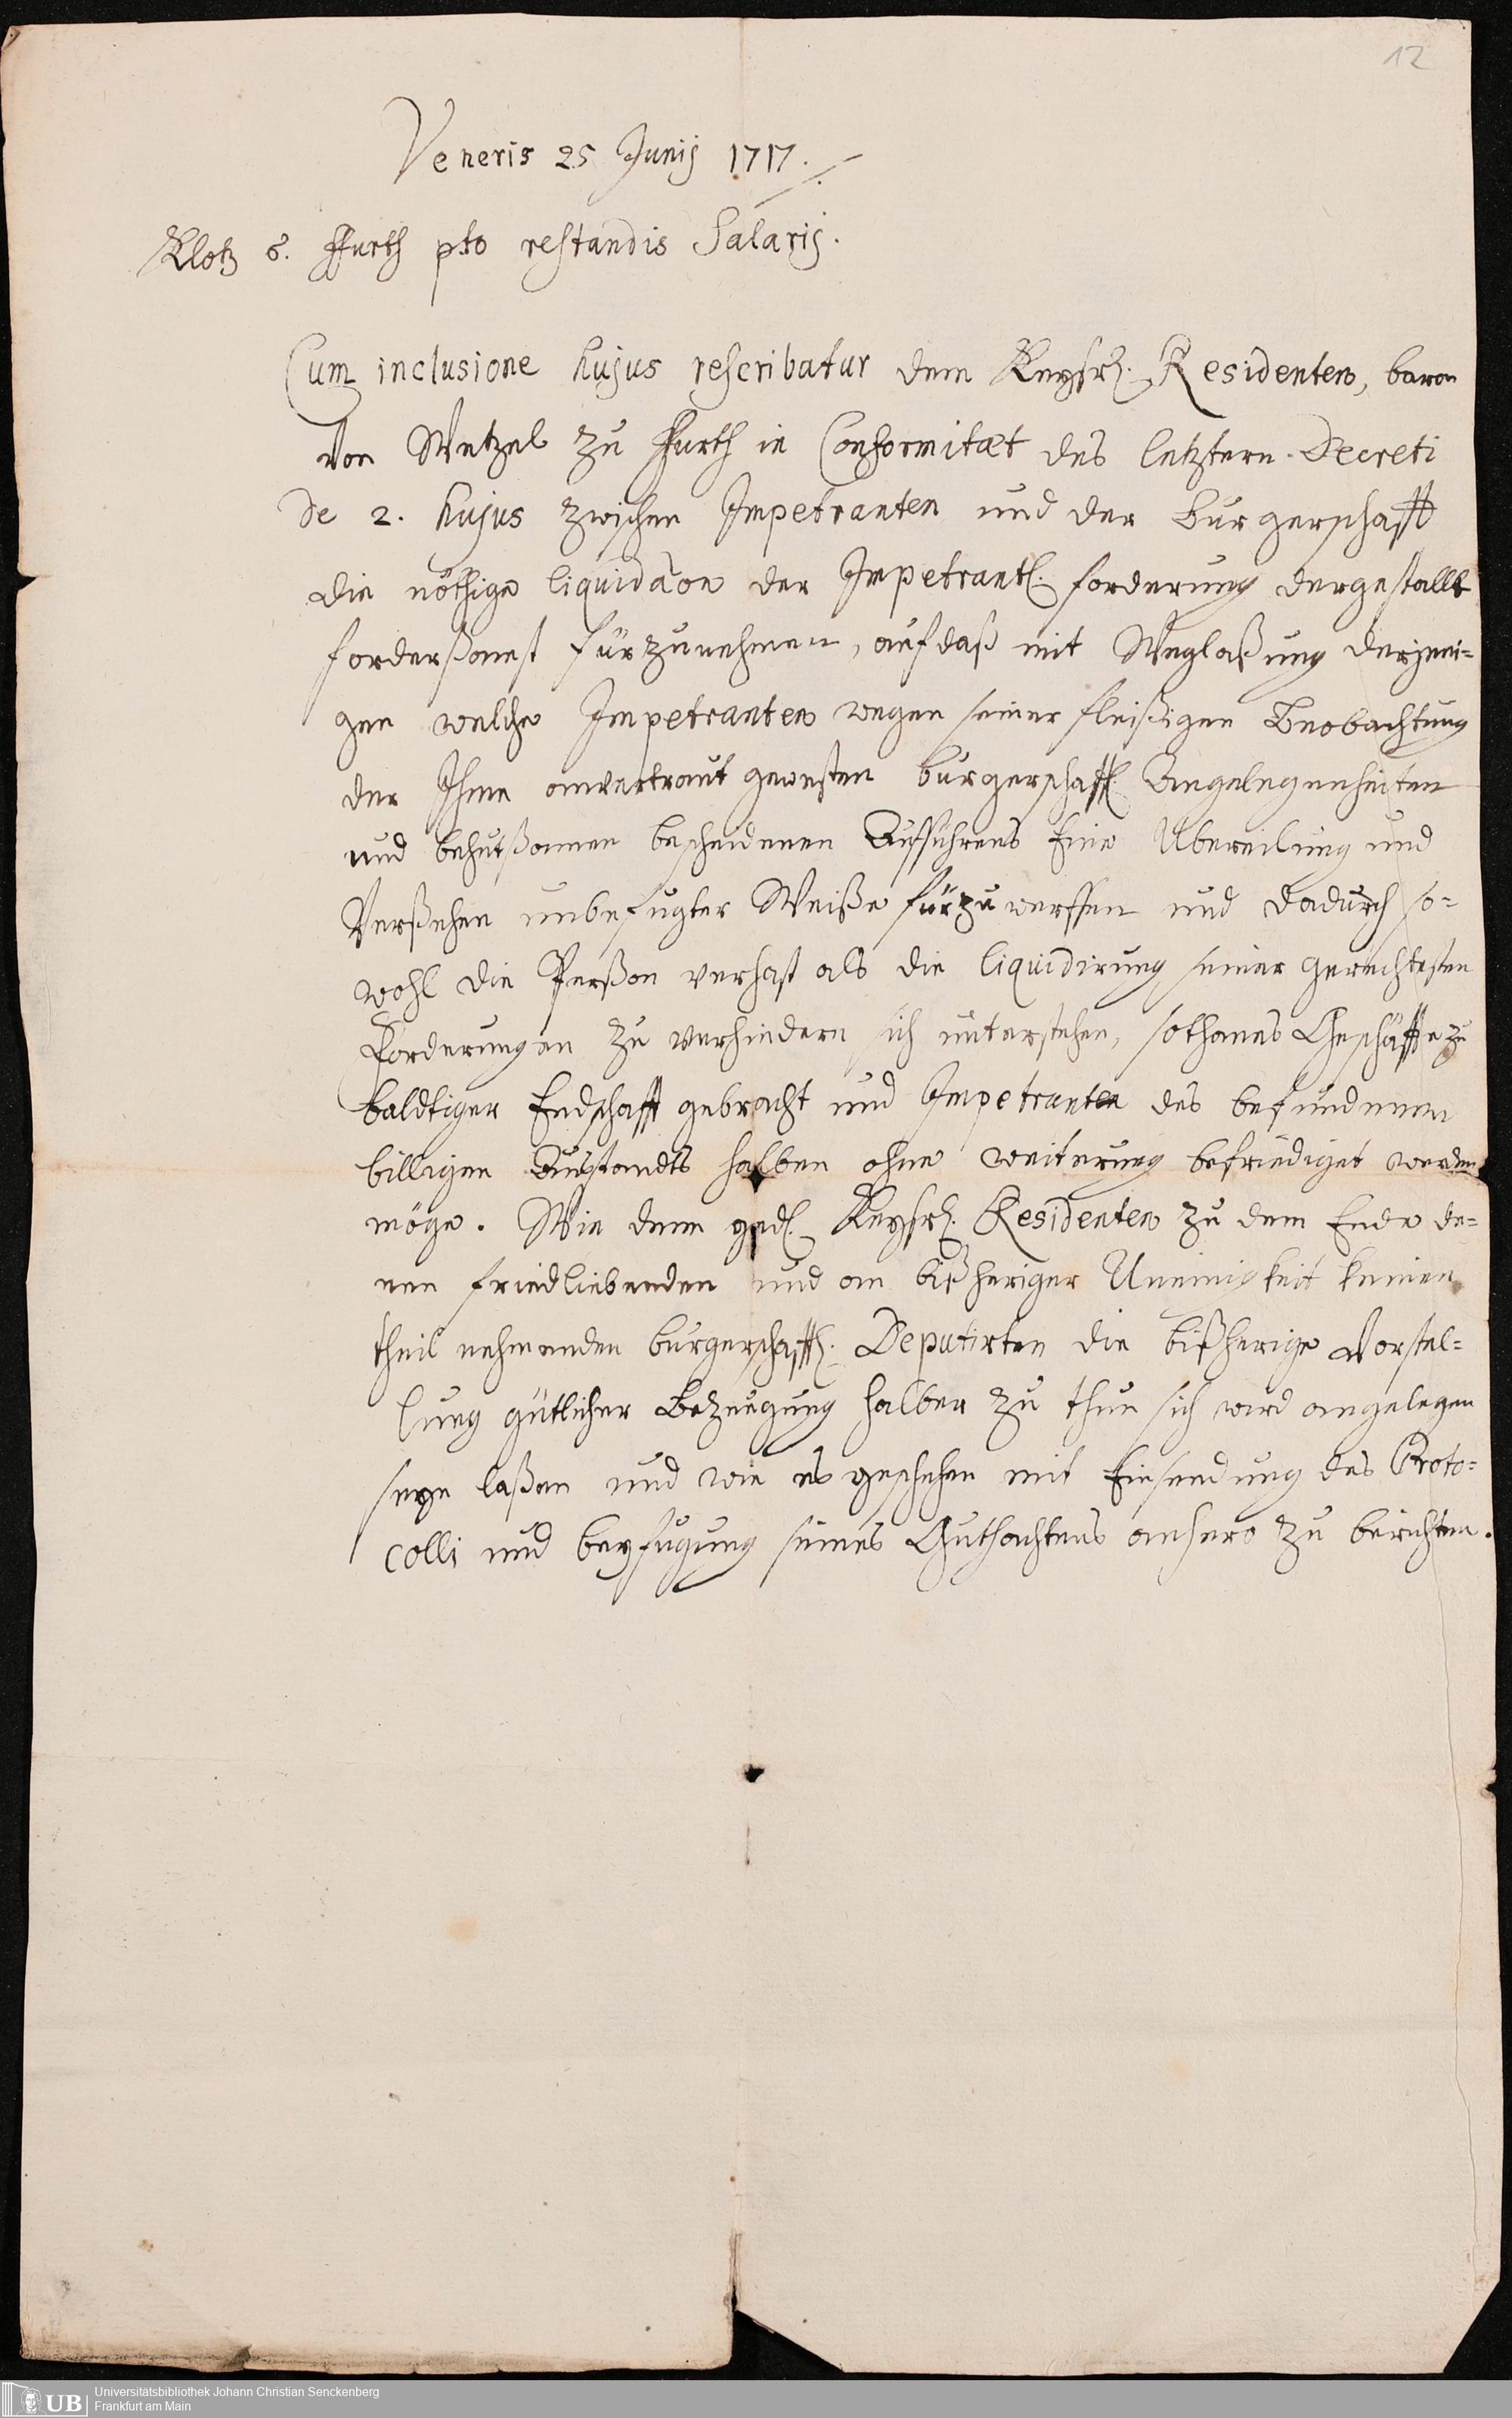 12
Veneris 25 Junij 1717.
Klotz c. ffurth pto restandis Salarij.
Cum inclusione hujus rescribatur dem Keyserl. Residenten, baron
von Wetzel zu ffurth in Conformitæt des letztern Decreti
de 2. hujus zwischen Impetranten und der Burgerschafft
die nöthige liquidãon der Impetrantl. forderung dergestallt
fordersamst fürzunehmen, auf daß mit Weglaßung derjeni-
gen welche Impetranten wegen seiner fleißigen Beobachtung
der Ihme anvertraut gewesten burgerschafftl. Angelegenheiten
und behutsamen bescheidenen Aufführens Eine Ubereilung und
Versehen unbefugter Weiße fürzuwerffen und dadurch so-
wohl die Person verhast als die liquidirung seiner gerechtesten
Forderungen zu verhindern sich unterstehen, sothanes Geschäffte zu
baldtiger Endschafft gebracht und Impetranten des befundenen
billigen Außstandts halben ohne weiterung befriediget werden
möge. Wie denn gedl. Keyserl. Residenten zu dem Ende de-
nen friedliebenden und an bißheriger Uneinigkeit keinen
theil nehmenden burgerschafftl. Deputirten die bißherige Vorstel-
lung gütlicher Bezeugung halber zu thun sich wird angelegen
seyn laßen und wie es geschehen mit Einsendung des Proto-
colli und beyfügung seines Guthachtens anhero zu berichten.
UB
Universitätsbibliothek Johann Christian Senckenberg
Frankfurt am Main